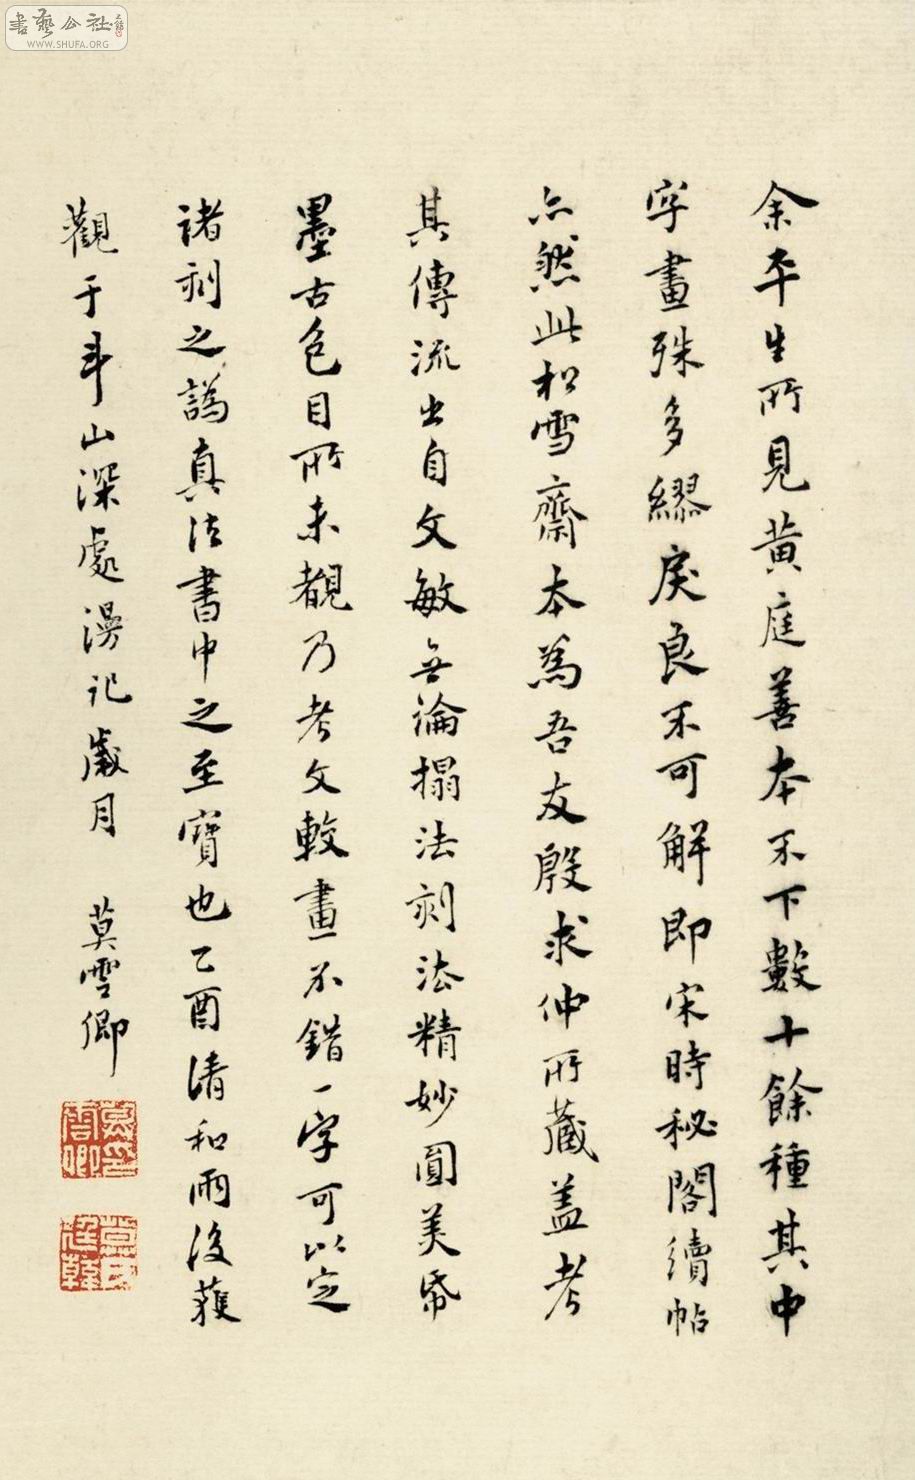 余平生所見黄庭善本不下數十餘種其中
字畫殊多繆戾良不可解即宋時秘閣續帖
亦然此松雪齋本為吾友殷求仲所藏蓋考
其傳流出自文敏無論搨法刻法精妙圓美帋
墨古色目所未覩乃考文較畫不錯一字可以定
諸刻之譌真法書中之至寶也乙酉清和雨後獲
觀于斗山深處漫記歲月 莫雲卿
莫雲卿印
莫氏廷韓
書藝公社
WWW.SHUFA.ORG